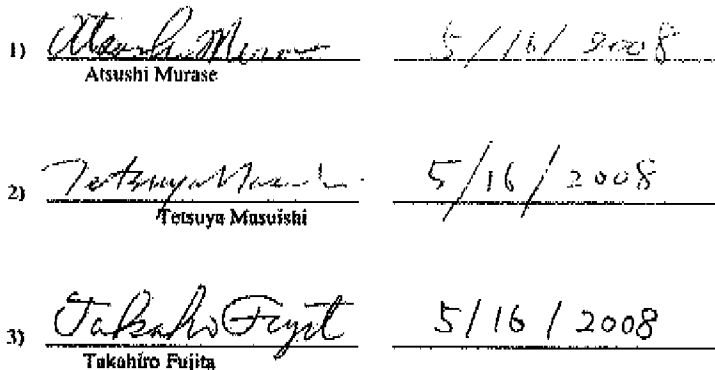 1) Atsushi Murase 5/16/2008
Atsushi Murase
2) Tetsuya Masuishi 5/16/2008
Tetsuya Masuishi
3) Takahiro Fujita 5/16/2008
Takahiro Fujita